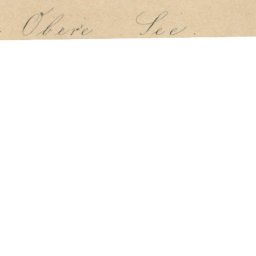 Obere See.